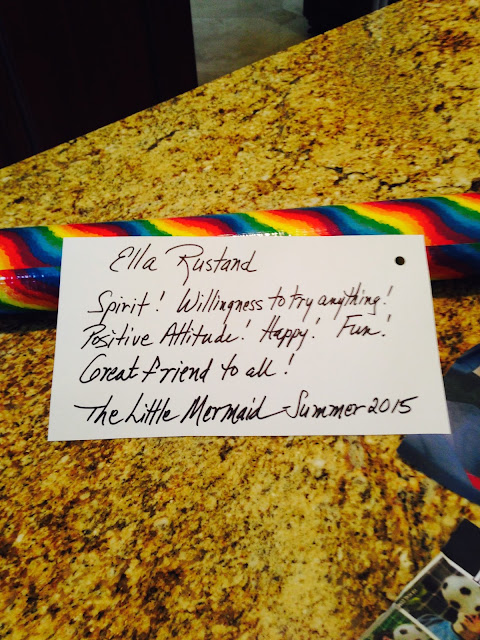 Ella Rustand
Spirit! Willingness to try anything!
Positive Attitude! Happy! Fun!
Great friend to all!
The Little Mermaid - Summer 2015